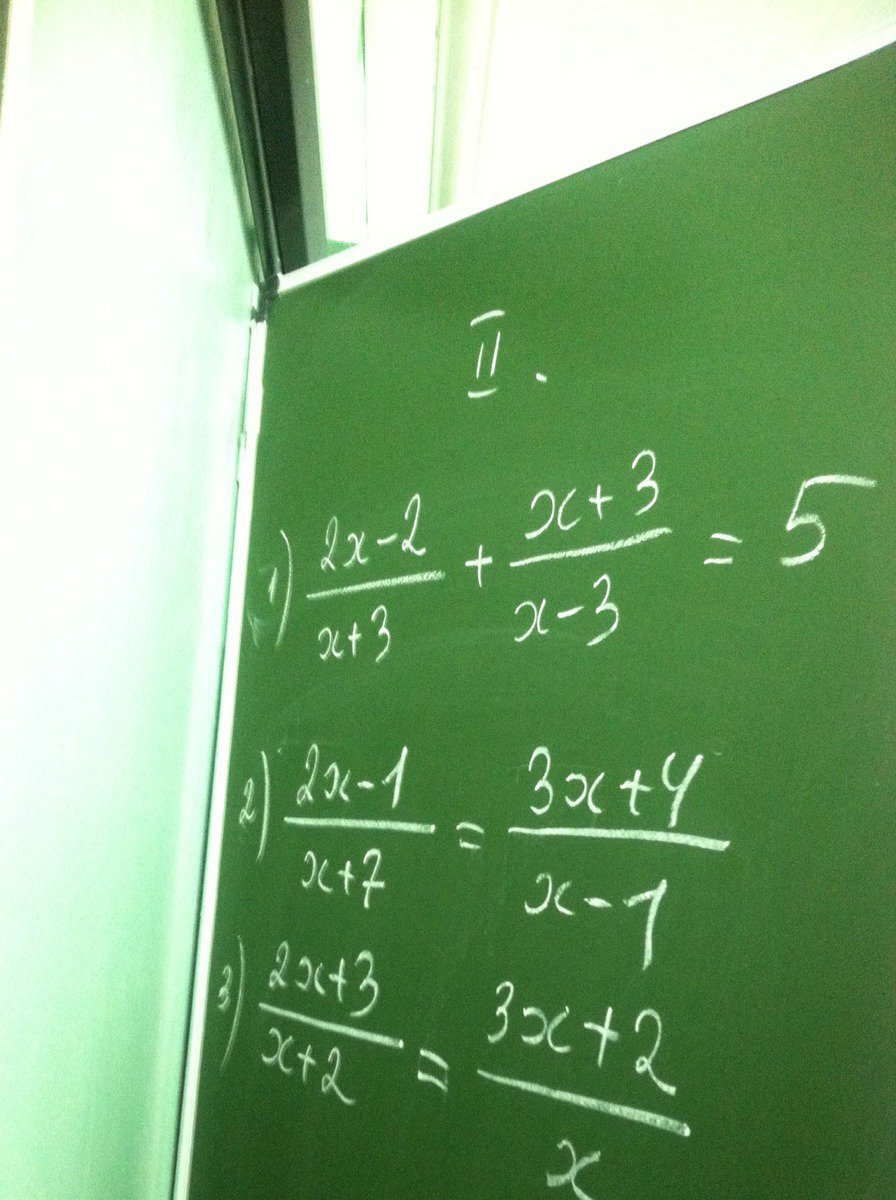 II.
1) \frac{2x-2}{x+3} + \frac{x+3}{x-3} = 5
2) \frac{2x-1}{x+7} = \frac{3x+4}{x-1}
3) \frac{2x+3}{x+2} = \frac{3x+2}{x}